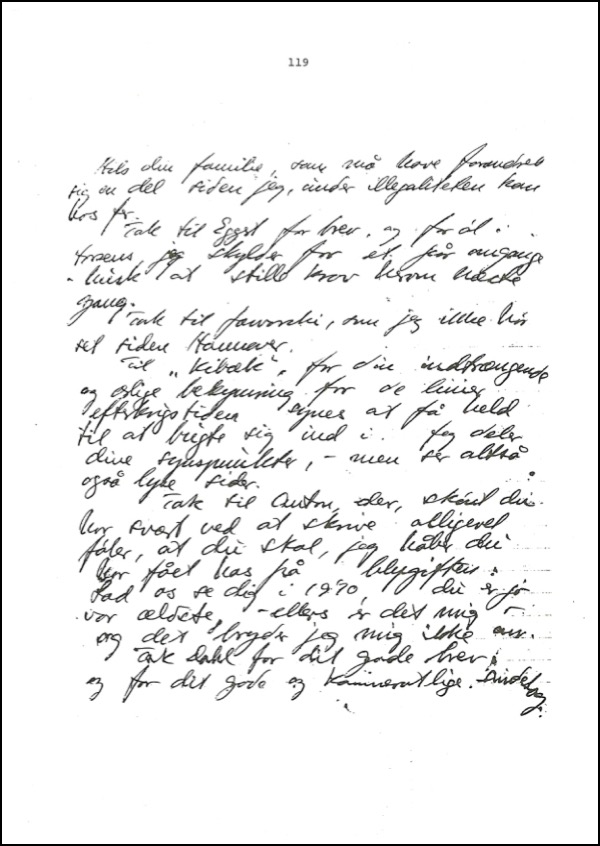 119
Hils din familie, som må have forandret
sig en del siden jeg, under illegaliteten kom
hos jer.
Tak til Eggert for brev, og for øl i
jeg skylder for et par omgange
- husk at stille krav herom næste
gang.
Tak til Jaworski, som jeg ikke har
set siden Hannover.
Til "Kibæk", for din indtrængende
og ærlige bekymring for de linier
efterkrigstiden synes at få held
til at bugte sig ind i. Jeg deler
dine synspunkter, - men ser altså
også lyse sider.
Tak til Anton, der, skønt du
har svært ved at skrive alligevel
føler, at du skal, jeg håber du
har fået has på blygiften:
Lad os se dig i 1970, du er jo
vor ældste, - ellers er det mig -
og det bryder jeg mig ikke om.
Tak Dahl for dit gode brev,
og for det gode og kammeratlige